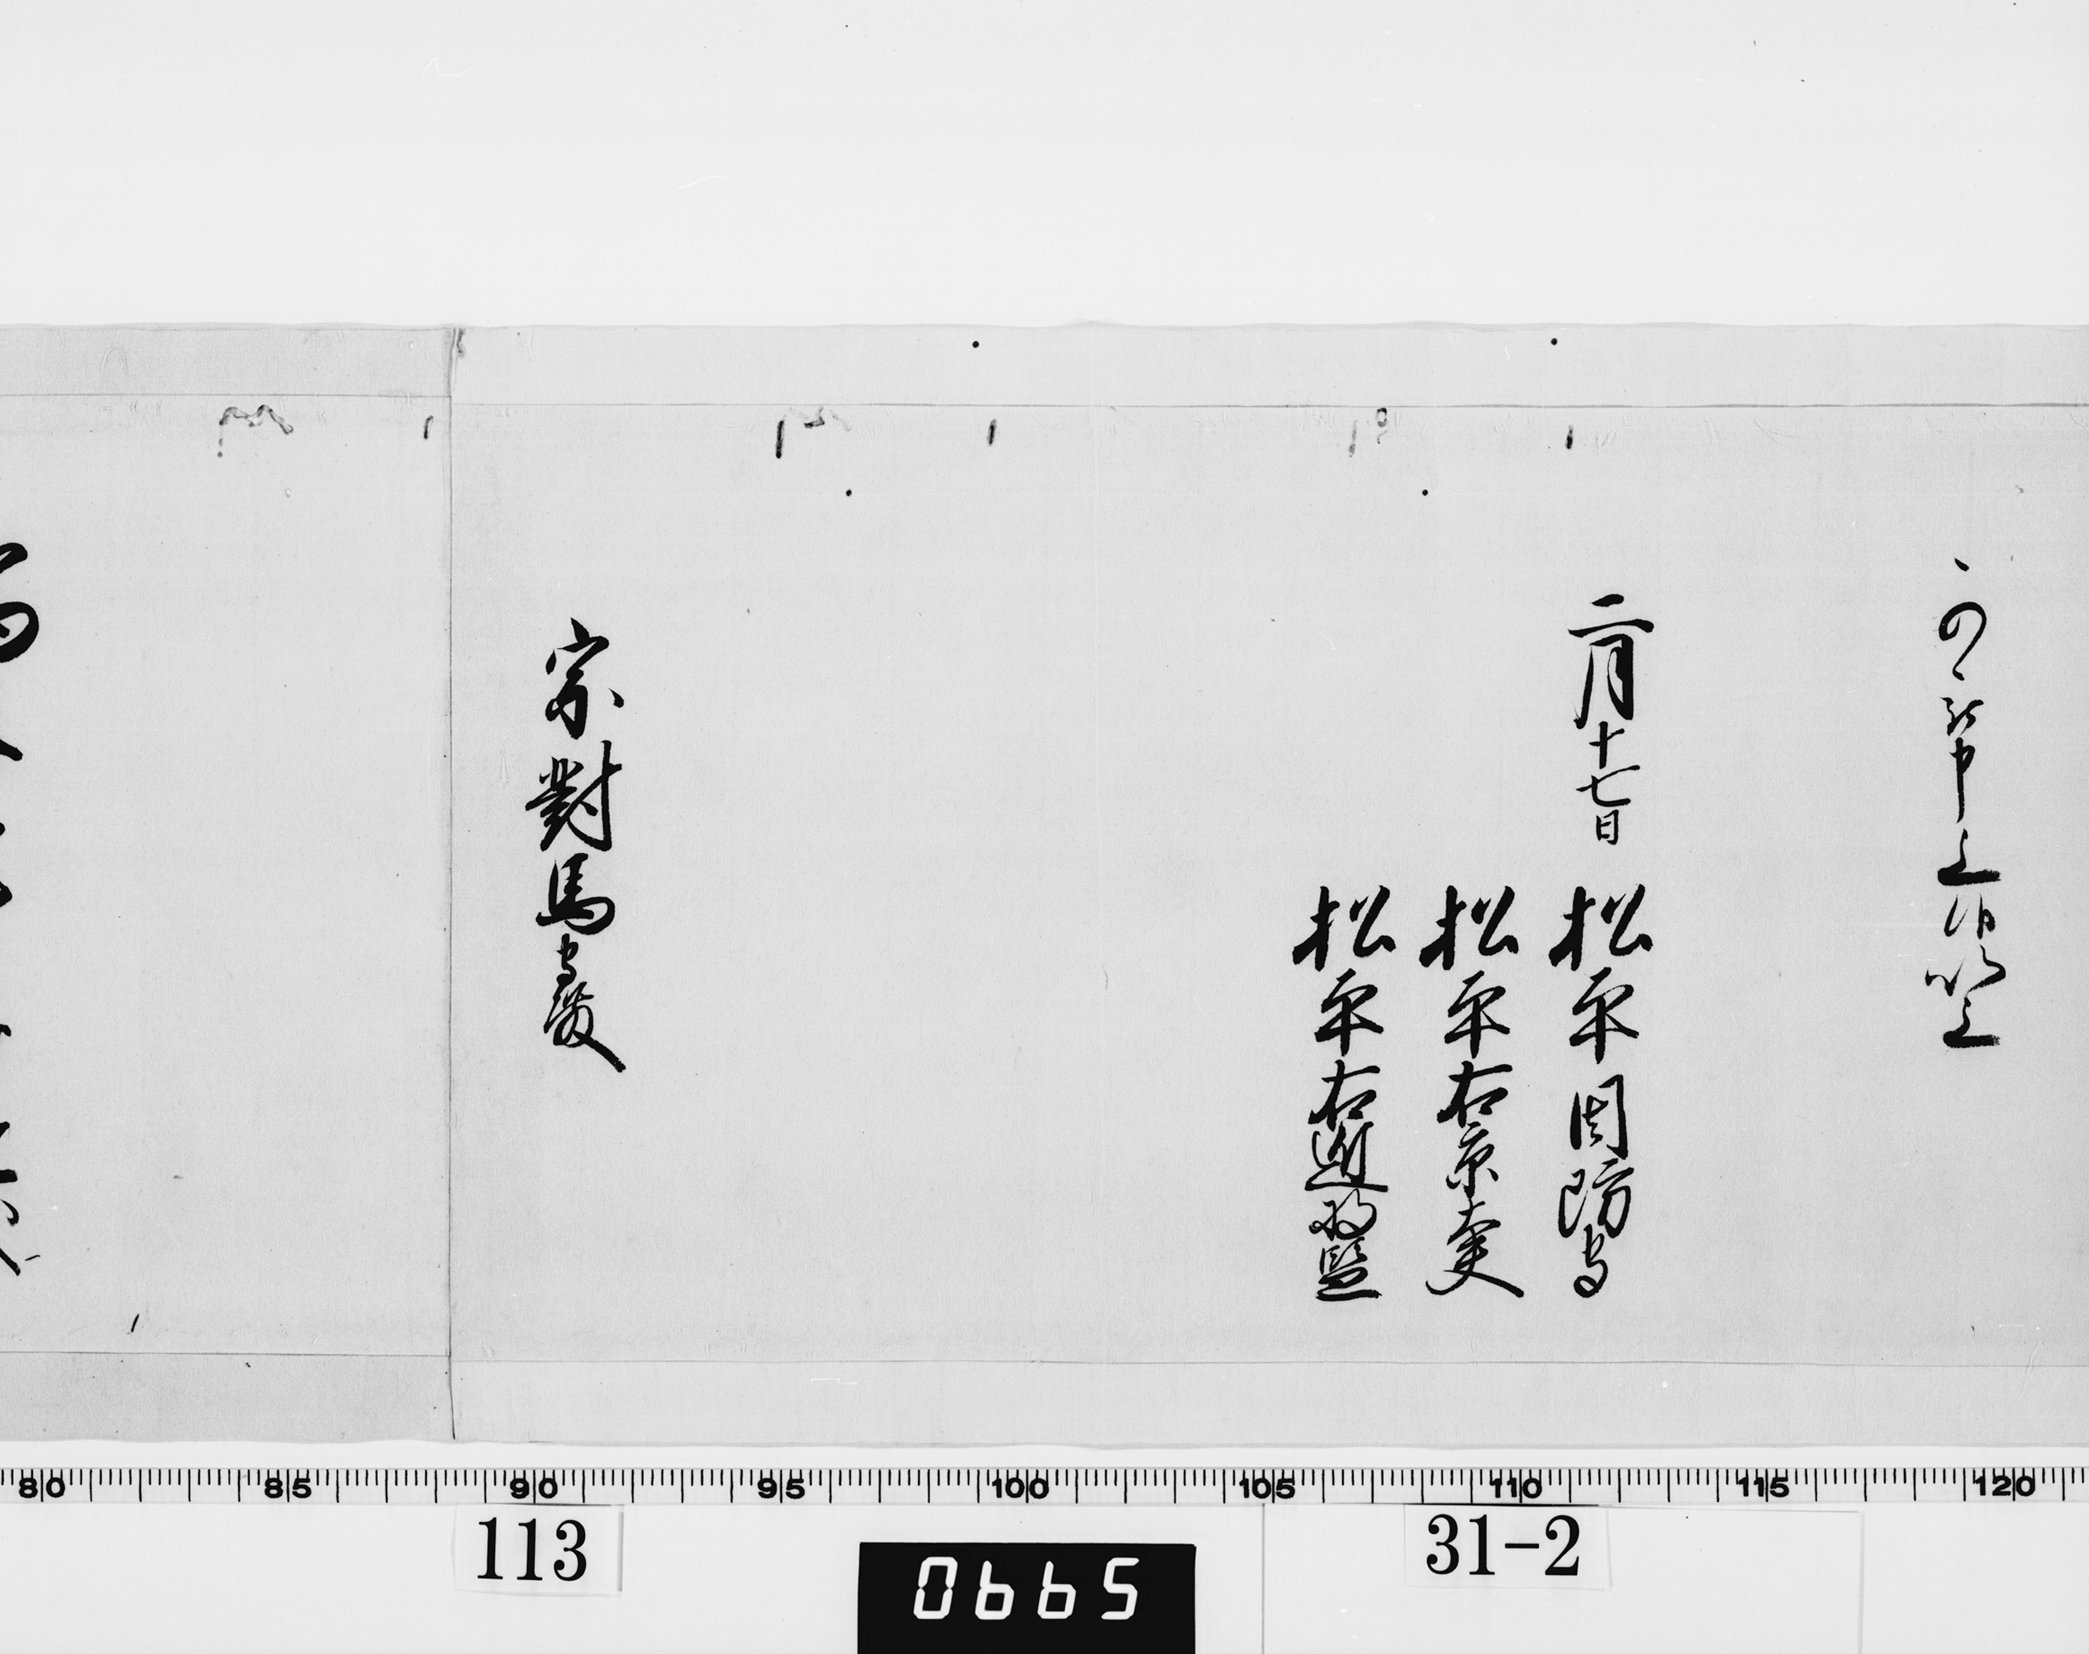 二月十七日
松平周防守
松平右京大夫
松平右近将監
宗對馬守殿
80 85 90 95 100 105 110 115 120
113
0665
31-2